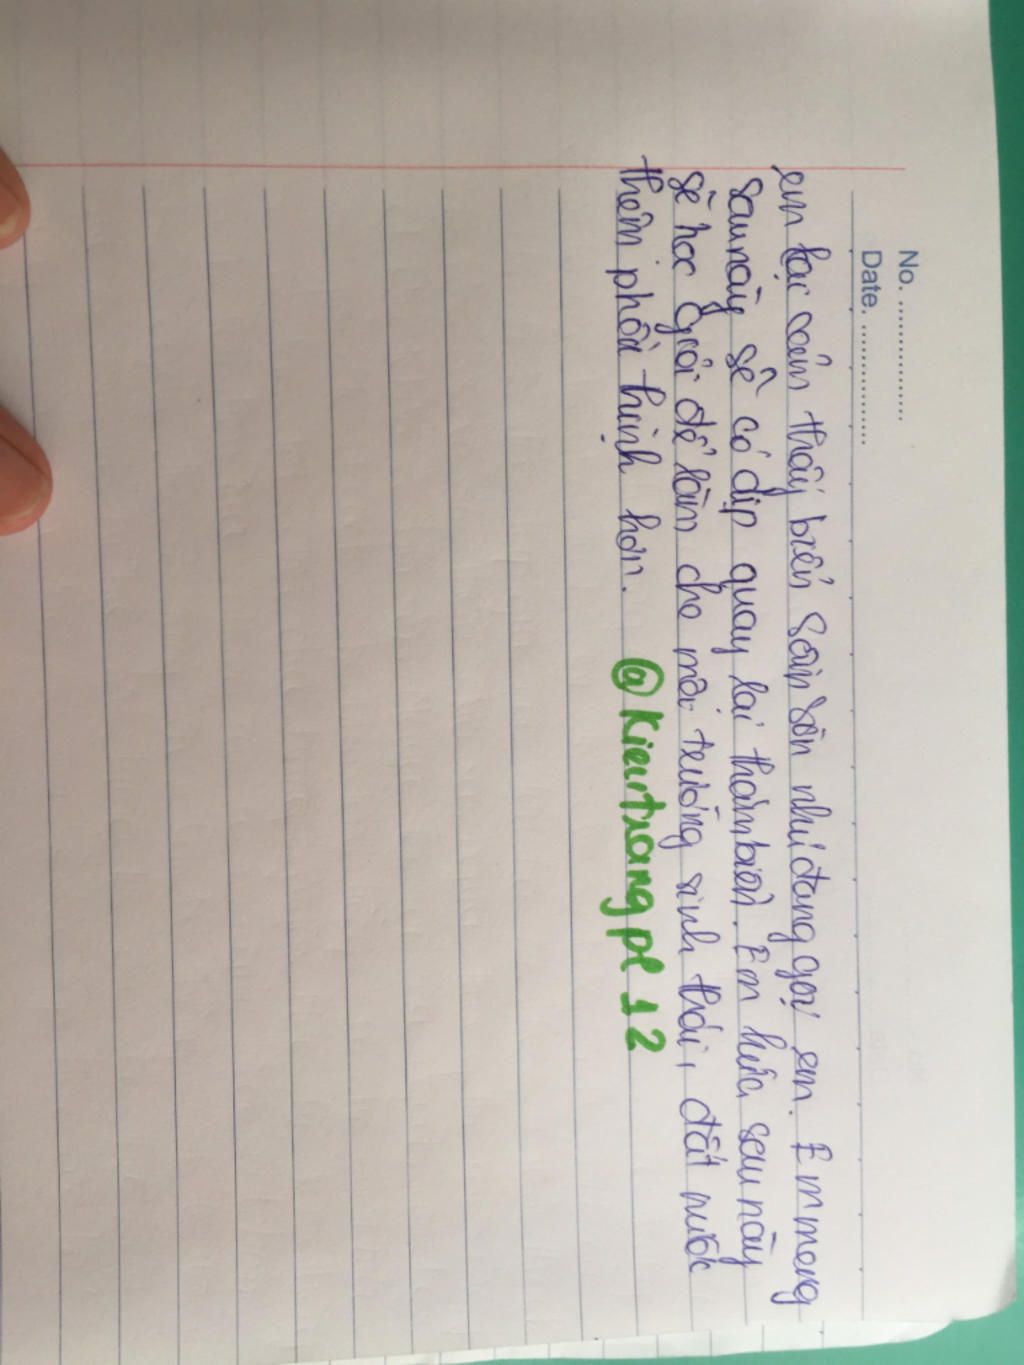 No. ................
Date. ................
em lại cảm thấy biển Sầm Sơn như đang gọi em. Em mong
sau này sẽ có dịp quay lại thăm biển. Em hứa, sau này
sẽ học giỏi để làm cho môi trường sinh thái, đất nước
thêm phồn thịnh hơn. @Kieutrangpl12